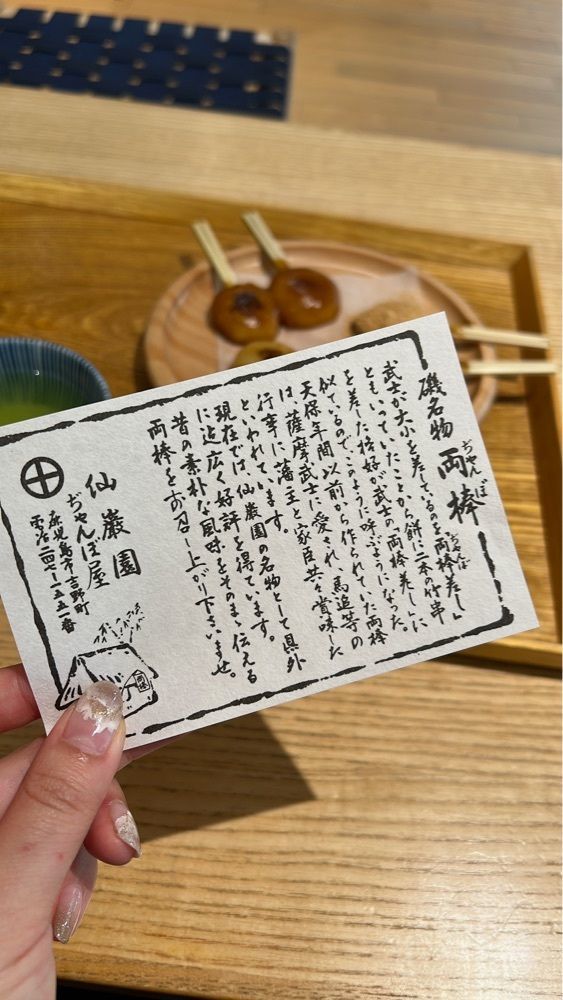 磯名物 両棒
ぢゃんぼ
武士が大小を差しているのを、両棒差し」
ともいっていたことから餅に二本の竹串
を差した格好が武士の「両棒差し」に
似ているので、このように呼ぶようになった。
天保年間以前から作られていた両棒
は、薩摩武士に愛され、馬追等の
行事に藩主と家臣共々賞味した
といわれています。
現在では、仙巌園の名物として県外
に迄広く好評を得ています。
昔の素朴な風味をそのまゝ伝える
両棒をお召し上がり下さいませ。
仙巌園
ぢゃんぼ屋
鹿児島市吉野町
電話二四七-一五五一番
両棒